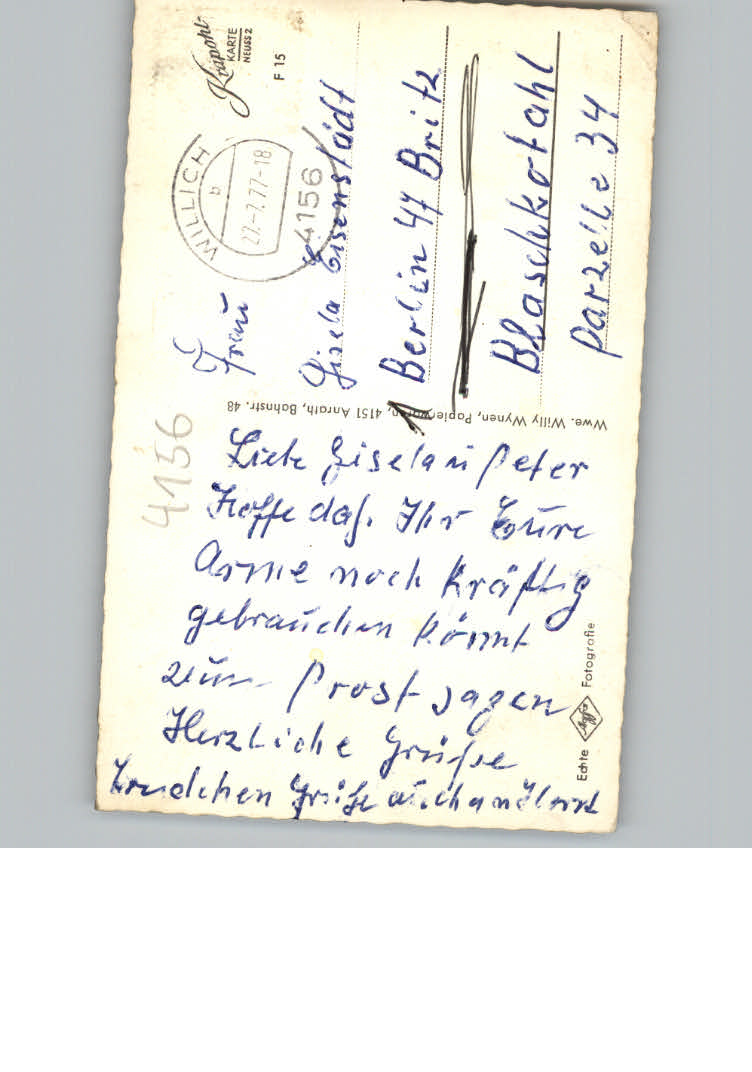 Liebe Gisela u Peter
Hoffe daß. Ihr Eure
Arme noch kräftig
gebrauchen könnt
zum Prost sagen
Herzliche Grüße
Trudchen Grüße auch an Horst
4156
Wwe. Willy Wynen, Papierwaren, 4151 Anrath, Bahnstr. 48
Echte Agfa Fotografie
Krapohl-
KARTE
NEUSS 2
F 15
WILLICH
b
27.-7.77-18
4156
Frau
Gisela Eisenstädt
1 Berlin 47 Britz
Blaschkotahl
Parzelle 34